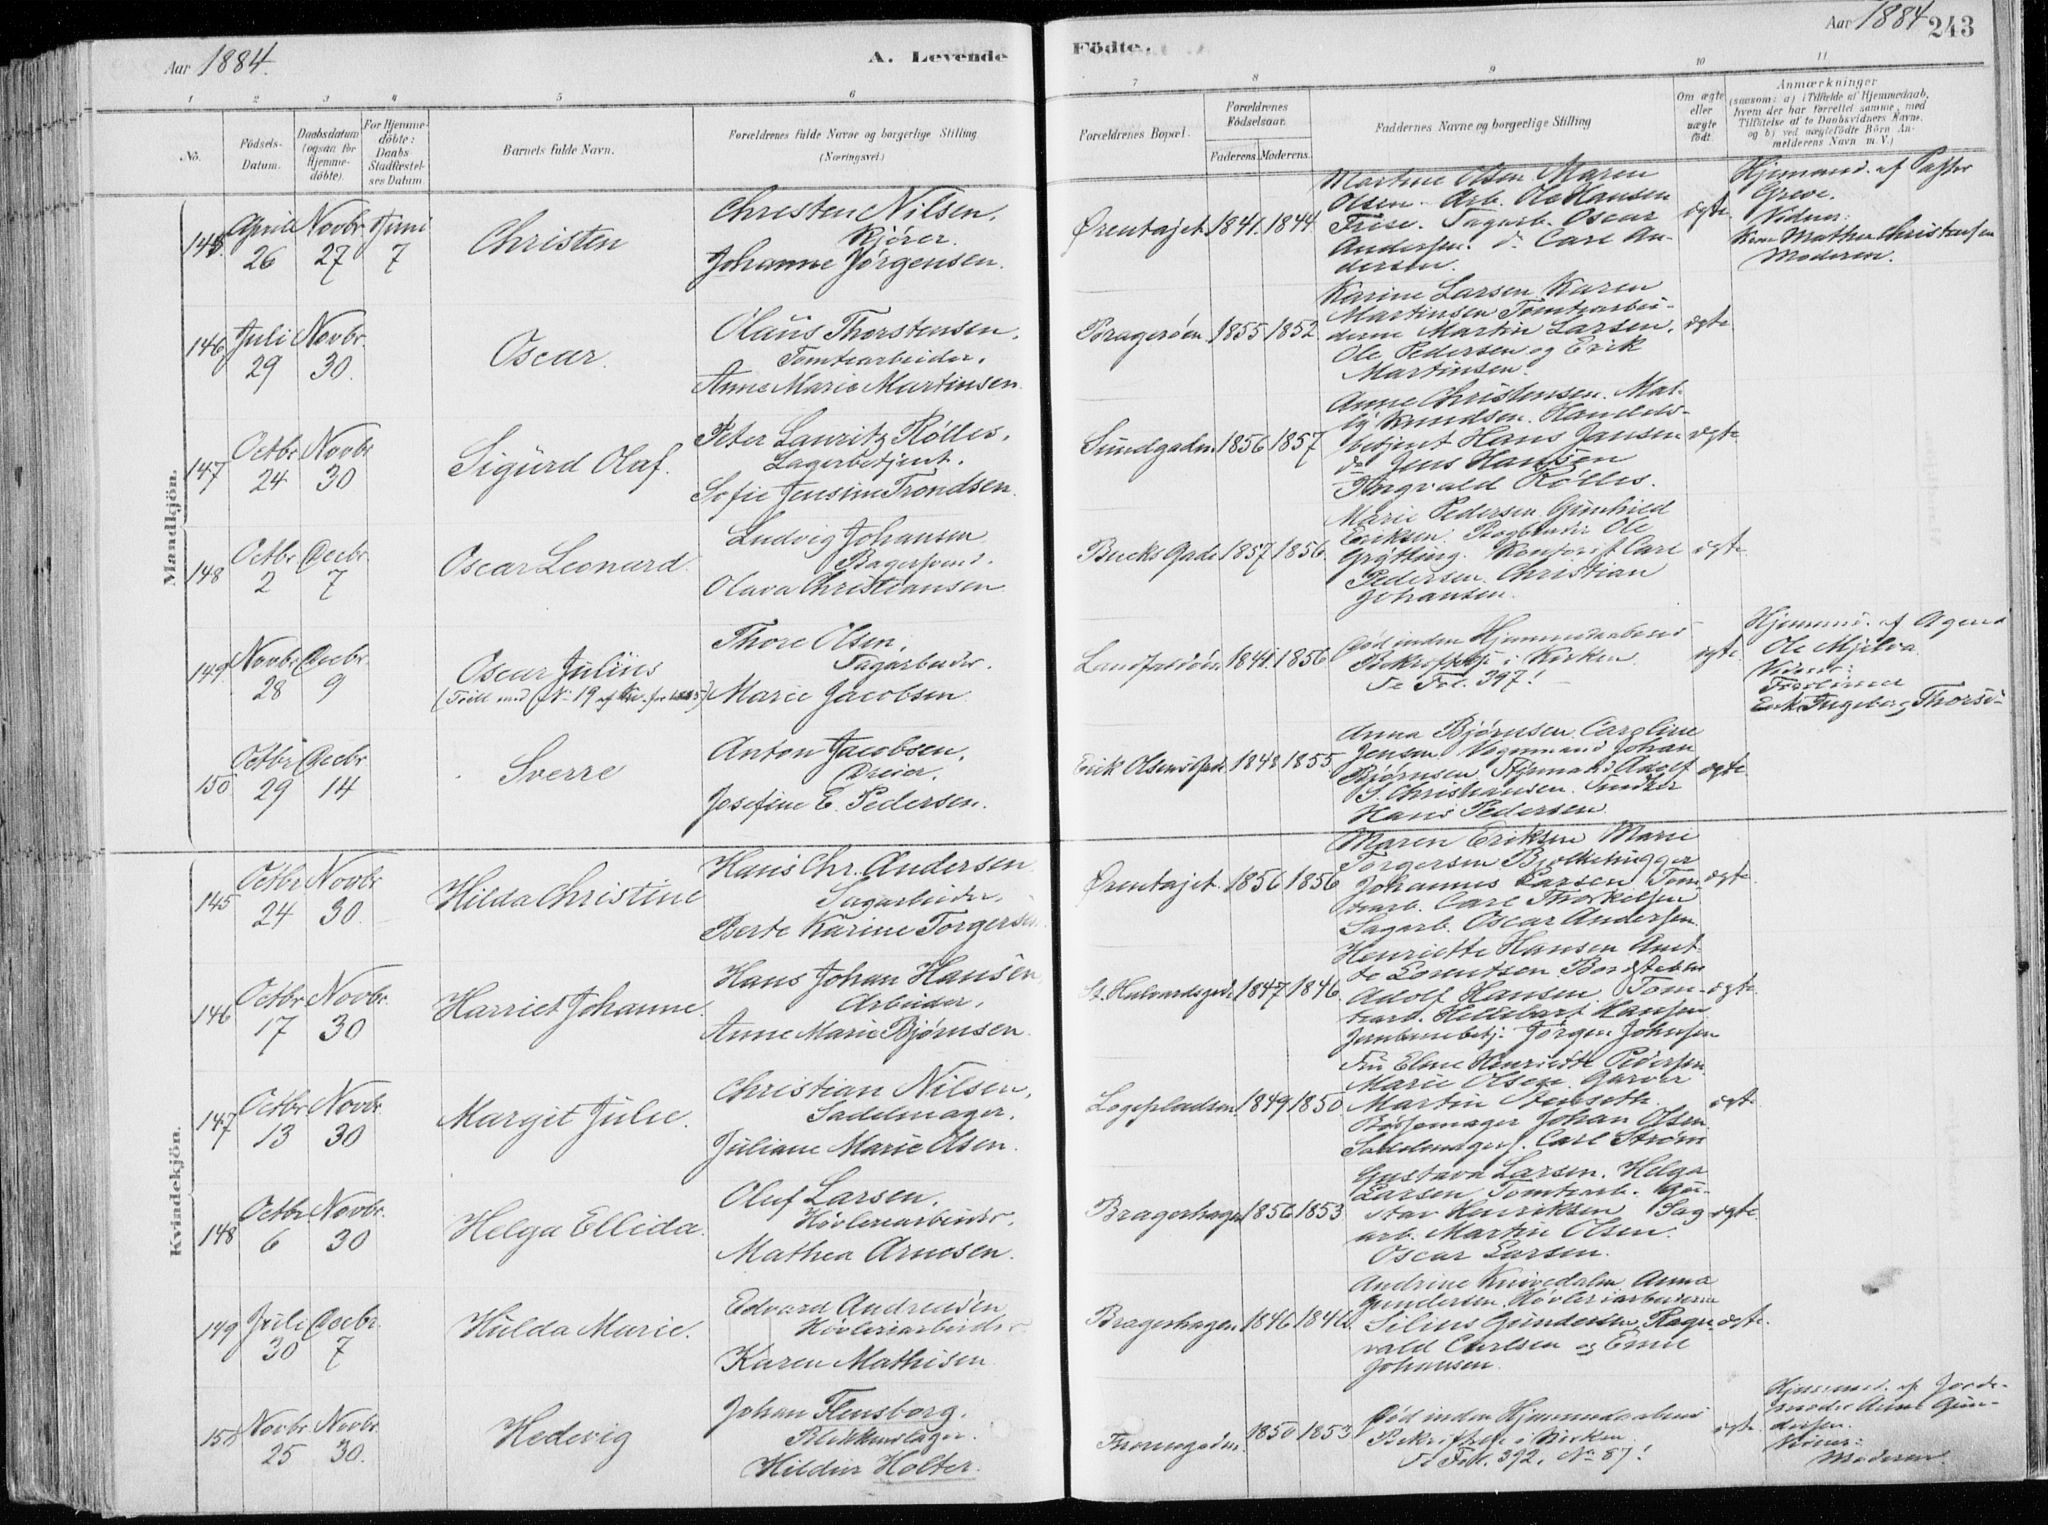 Aar 1884.
A. Levende Födte.
Aar 1884
243
1 2 3 4 5 6 7 8 9 10 11
No.
Födsels-Datum.
Daabsdatum (ogsaa for Hjemme-döbte).
For Hjemme-döbte: Daabs Stadfæstel-ses Datum
Barnets fulde Navn.
Forældrenes fulde Navne og borgerlige Stilling
(Næringsvei.)
Forældrenes Bopæl.
Forældrenes Födselsaar.
Faderens. Moderens.
Faddernes Navne og borgerlige Stilling
Om ægte eller uægte födt.
Anmærkninger
(saasom: a) i Tilfælde af Hjemmedaab, hvem der har forrettet samme, med Tilföielse af to Daabsvidners Navne, og b) ved uægtefödte Börn An-melderens Navn m. V.)
Mandkjön.
145. April 26 Novbr 27 Juni 7
Christen
Christen Nilsen.
Kjører.
Johanne Jørgensen.
Ørentajet. 1841. 1844
Martine Olsen Maren
Olsen. Arb. Ole Hansen
Frise. Sagarb. Oscar
Andersen. d. Carl An-
dersen.
ægte
Hjemmed. af Pastor
Greve.
Vidner:
Mathea Christensen
Moderen.
146 Juli 29 Novbr. 30.
Oscar.
Olaus Thorstensen.
Tomtearbeider.
Anne Marie Martinsen
Bragerøen. 1855 1852
Karine Larsen Karen
Martinsen Tomtearbei-
derne Martin Larsen.
Ole Pedersen og Erik
Martinsen.
ægte
147 Octbr 24 Novbr 30
Sigurd Olaf.
Peter Lauritz Rølles.
Lagerbetjent.
Sofie Jensine Trondsen.
Sundgaden. 1856 1857
Anne Christensen. Mat-
Knudsen. Handels-
betjent Hans Jansen
do Jens Hansen
Ingvald Rølles.
ægte
148 Octbr 2 Decbr. 7
Oscar Leonard.
Ludvig Johansen
Bagersvend.
Olava Christiansen
Bucks Gade 1857 1856.
Marie Pedersen Gunhild
Eriksen. Bogbinder Ole
Grøtting. Carl
Pedersen. Christian
Johansen.
ægte
149 Novbr 28 Decbr. 9
Oscar Julius
Thore Olsen.
Sagarbeider.
Marie Jacobsen
1844. 1856
Død inden Hjemmedaabens
Bekræftelse i Kirken.
Se Fol. 397!
ægte.
Hjemmed. af
Ole
Vidner:
150 Octbr 29 Decbr 14
Sverre
Anton Jacobsen.
Dreier.
Josefine E. Pedersen.
Erik Olsens Gade. 1848 1855.
Anna Bjørnsen Caroline
Jensen Vognmand Johan
Bjørnsen Styrmand Adolf
S. Christiansen. Snedker
Hans Pedersen
ægte
Kvindekjön.
145 Octbr 24 Novbr 30.
Hilda Christine
Hans Chr. Andersen
Sagarbeider.
Berte Karine Torgersen
Ørentajet. 1856 1856
Maren Eriksen Marie
Torgersen Bjelkehugger
Johannes Larsen Tom-
tearb. Carl Thorkilsen
Sagarb. Oscar Andersen
ægte
146 Octbr 17 Novbr. 30
Harriet Johanne.
Hans Johan Hansen,
Arbeider.
Anne Marie Bjørnsen
St. Halvardsgade 1847 1846
Henriette Hansen Anet-
te Lorentsen
Adolf Hansen Tom-
tearb. Hansen
Jernbanebetj. Jørgen Johnsen
ægte.
147 Octbr 13 Novbr. 30
Margit Julie.
Christian Nilsen.
Sadelmager.
Juliane Marie Olsen.
Logepladsen. 1849 1850
Fru Elme Henriette Pedersen
Marie Olsen. Garver
Martin Stenseth.
Børstemager Johan Olsen
Sadelmagersv. Carl Strøm
ægte
148 Octbr 6 Novbr. 30
Helga Ellida.
Oluf Larsen,
Høvleriarbeider.
Mathea Arnesen.
Bragerhagen 1856 1853
Gustava Larsen. Helga
Larsen Tomtearb. Gu-
stav Henriksen Sag-
arb. Martin Olsen.
Oscar Larsen.
ægte
149 Juli 30 Decbr. 7
Hulda Marie.
Edvard Andreasen
Høvleriarbeider
Karen Mathisen
Bragerhagen 1846 1846.
Andrine Anna
Gundersen Høvleriarbeiderne
Silius Gundersen Ragn-
vald Carlsen og Emil
Johansen.
ægte.
150 Novbr 25 Novbr. 30.
Hedevig
Johan Flensborg.
Blikkenslager.
Hildur Holter.
1850 1853
Død inden Hjemmedaabens
Bekræftelse i Kirken.
Fol. 392. No 87!
ægte.
Hjemmed. af Jorde-
moder Anne Gun-
dersen.
Vidner:
Moderen